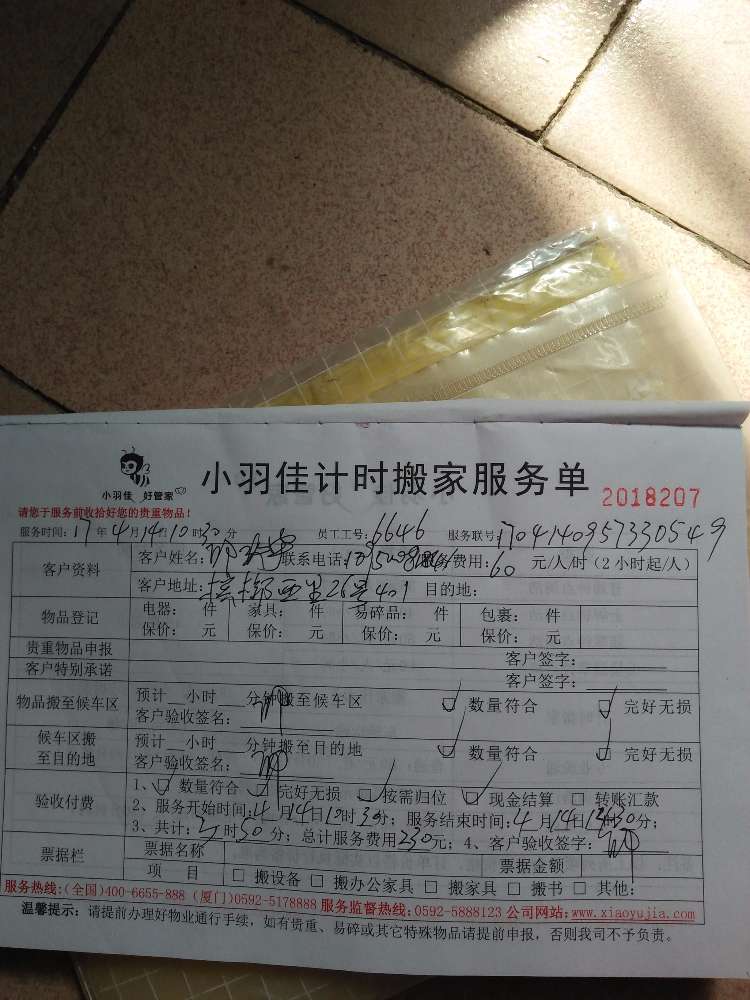 小羽佳 好管家
小羽佳计时搬家服务单 2018207
请您于服务前收拾好您的贵重物品!
服务时间:17年4月14日10时30分 员工工号:6646 服务联号:1704140957330549
客户资料 客户姓名: 联系电话: 服务费用:60元/人/时(2小时起/人)
客户地址: 西里26号401 目的地:
物品登记 电器: 件 家具: 件 易碎品: 件 包裹: 件
保价: 元 保价: 元 保价: 元 保价: 元
贵重物品申报 客户签字:
客户特别承诺 客户签字:
物品搬至候车区 预计__小时__分钟搬至候车区 数量符合 完好无损
客户验收签名:
候车区搬至目的地 预计__小时__分钟搬至目的地 数量符合 完好无损
客户验收签名:
验收付费 1、数量符合 完好无损 按需归位 现金结算 □ 转账汇款
2、服务开始时间:4月14日10时30分; 服务结束时间:4月14日 时30分;
3、共计: 时50分; 总计服务费用230元; 4、客户验收签字:
票据栏 票据名称 票据金额
项 目 □ 搬设备 □ 搬办公家具 □ 搬家具 □ 搬书 □ 其他:
服务热线:(全国)400-6655-888 (厦门)0592-5178888 服务监督热线:0592-5888123 公司网站:www.xiaoyujia.com
温馨提示:请提前办理好物业通行手续,如有贵重、易碎或其它特殊物品请提前申报,否则我司不予负责。